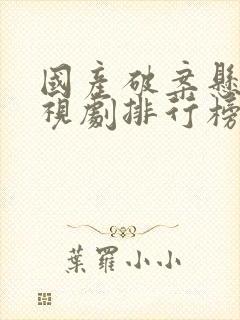 國產破案懸
視劇排行榜
葉羅小小